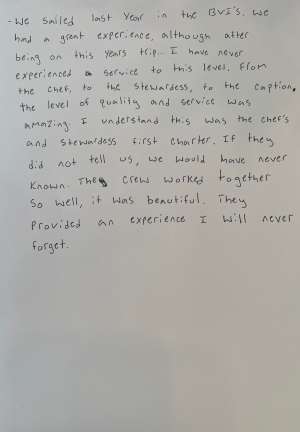 - We sailed last year in the BVI's. We
had a great experience, although after
being on this years trip... I have never
experienced a service to this level. From
the chef, to the stewardess, to the caption,
the level of quality and service was
amazing. I understand this was the chef's
and stewardess first charter. If they
did not tell us, we would have never
known. The crew worked together
so well, it was beautiful. They
provided an experience I will never
forget.